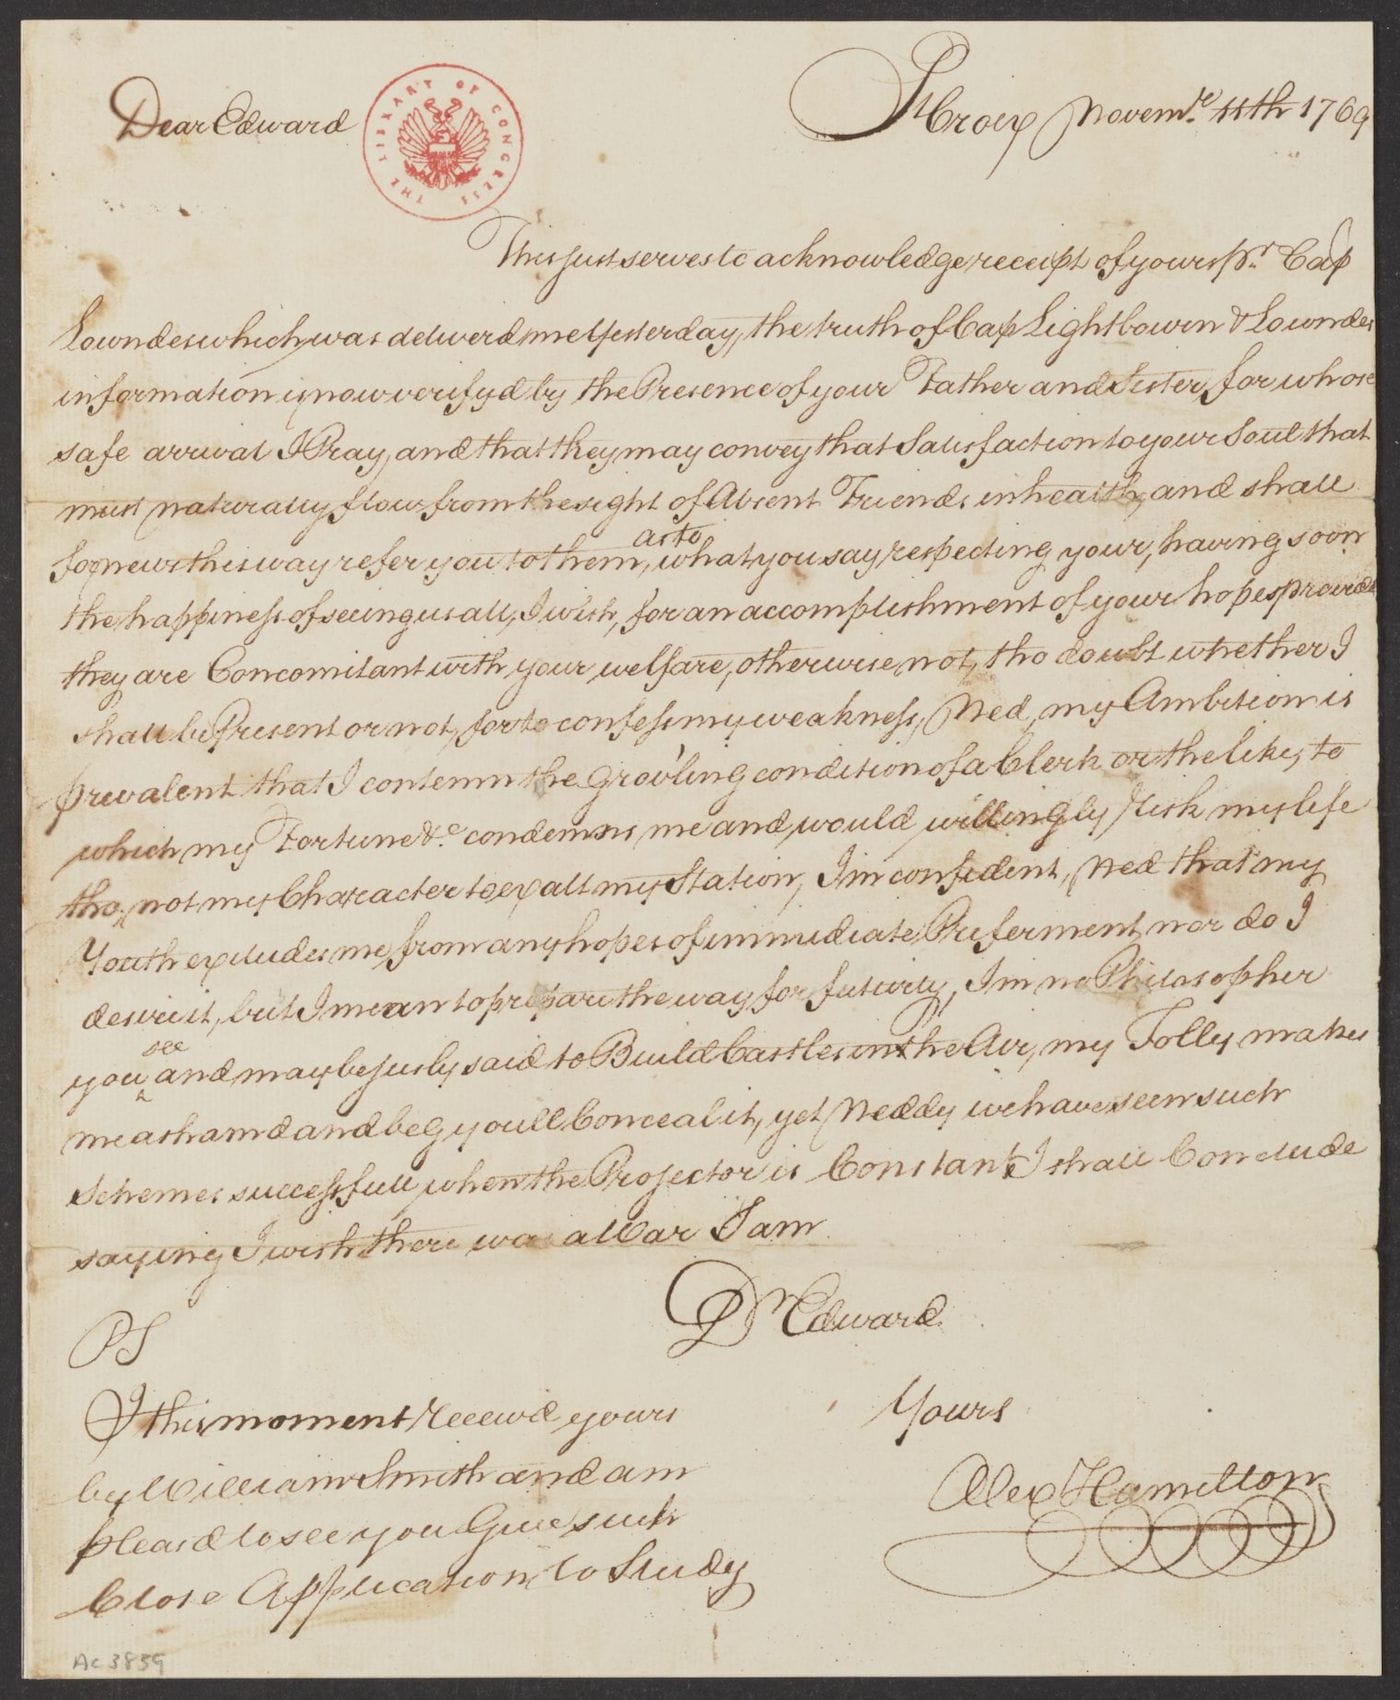 St Croix Novemr. 11th 1769
Dear Edward
THE LIBRARY OF CONGRESS
This just serves to acknowledge receipt of yours pr. Cap
Lowndes which was deliverd me Yesterday, the truth of Cap Lightbowen & Lowndes
information is now verifyd by the Presence of your Father and Sister for whose
safe arrival I Pray, and that they may convey that Satisfaction to your Soul that
must naturally flow from the sight of Absent Friends in health, and shall
for news this way refer you to them, as to what you say respecting your, having soon
the happiness of seeing us all, I wish, for an accomplishment of your hopes provided
they are Concomitant with your welfare, otherwise not, tho doubt whether I
shall be Present or not, for to confess my weakness, Ned, my Ambition is
prevalent that I contemn the grov'ling condition of a Clerk or the like, to
which my Fortune &c. condemns me and would willingly risk my life
tho not my Character to exalt my Station, Im confident, Ned that my
Youth excludes me from any hopes of immediate Preferment nor do I
desire it, but I mean to prepare the way for futurity, Im no Philosopher
you see and may be jusly said to Build Castles in the Air, my Folly makes
me ashamd and beg youll Conceal it, yet Neddy we have seen such
Schemes successfull when the Projector is Constant I shall Conclude
saying I wish there was a War I am
Dr Edward
PS
Yours
I this moment receivd yours
Alex Hamilton
by William Smith and am
pleasd to see you Give such
Close Application to Study
Ac 3859